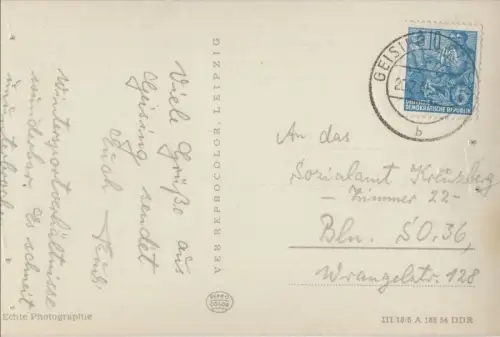 Viele Grüße aus
Geising sendet
Auch
Wintersportverhältnisse
wunderbar. Es schneit
ununterbrochen.
VEB REPROCOLOR LEIPZIG
REPRO
COLOR
Echte Photographie
GEISING
b
10
DEUTSCHE
DEMOKRATISCHE REPUBLIK
An das
Sozialamt Kreuzberg
- Zimmer 22-
Bln. SO. 36,
Wrangelstr. 128
III/18/6 A 182 54 DDR